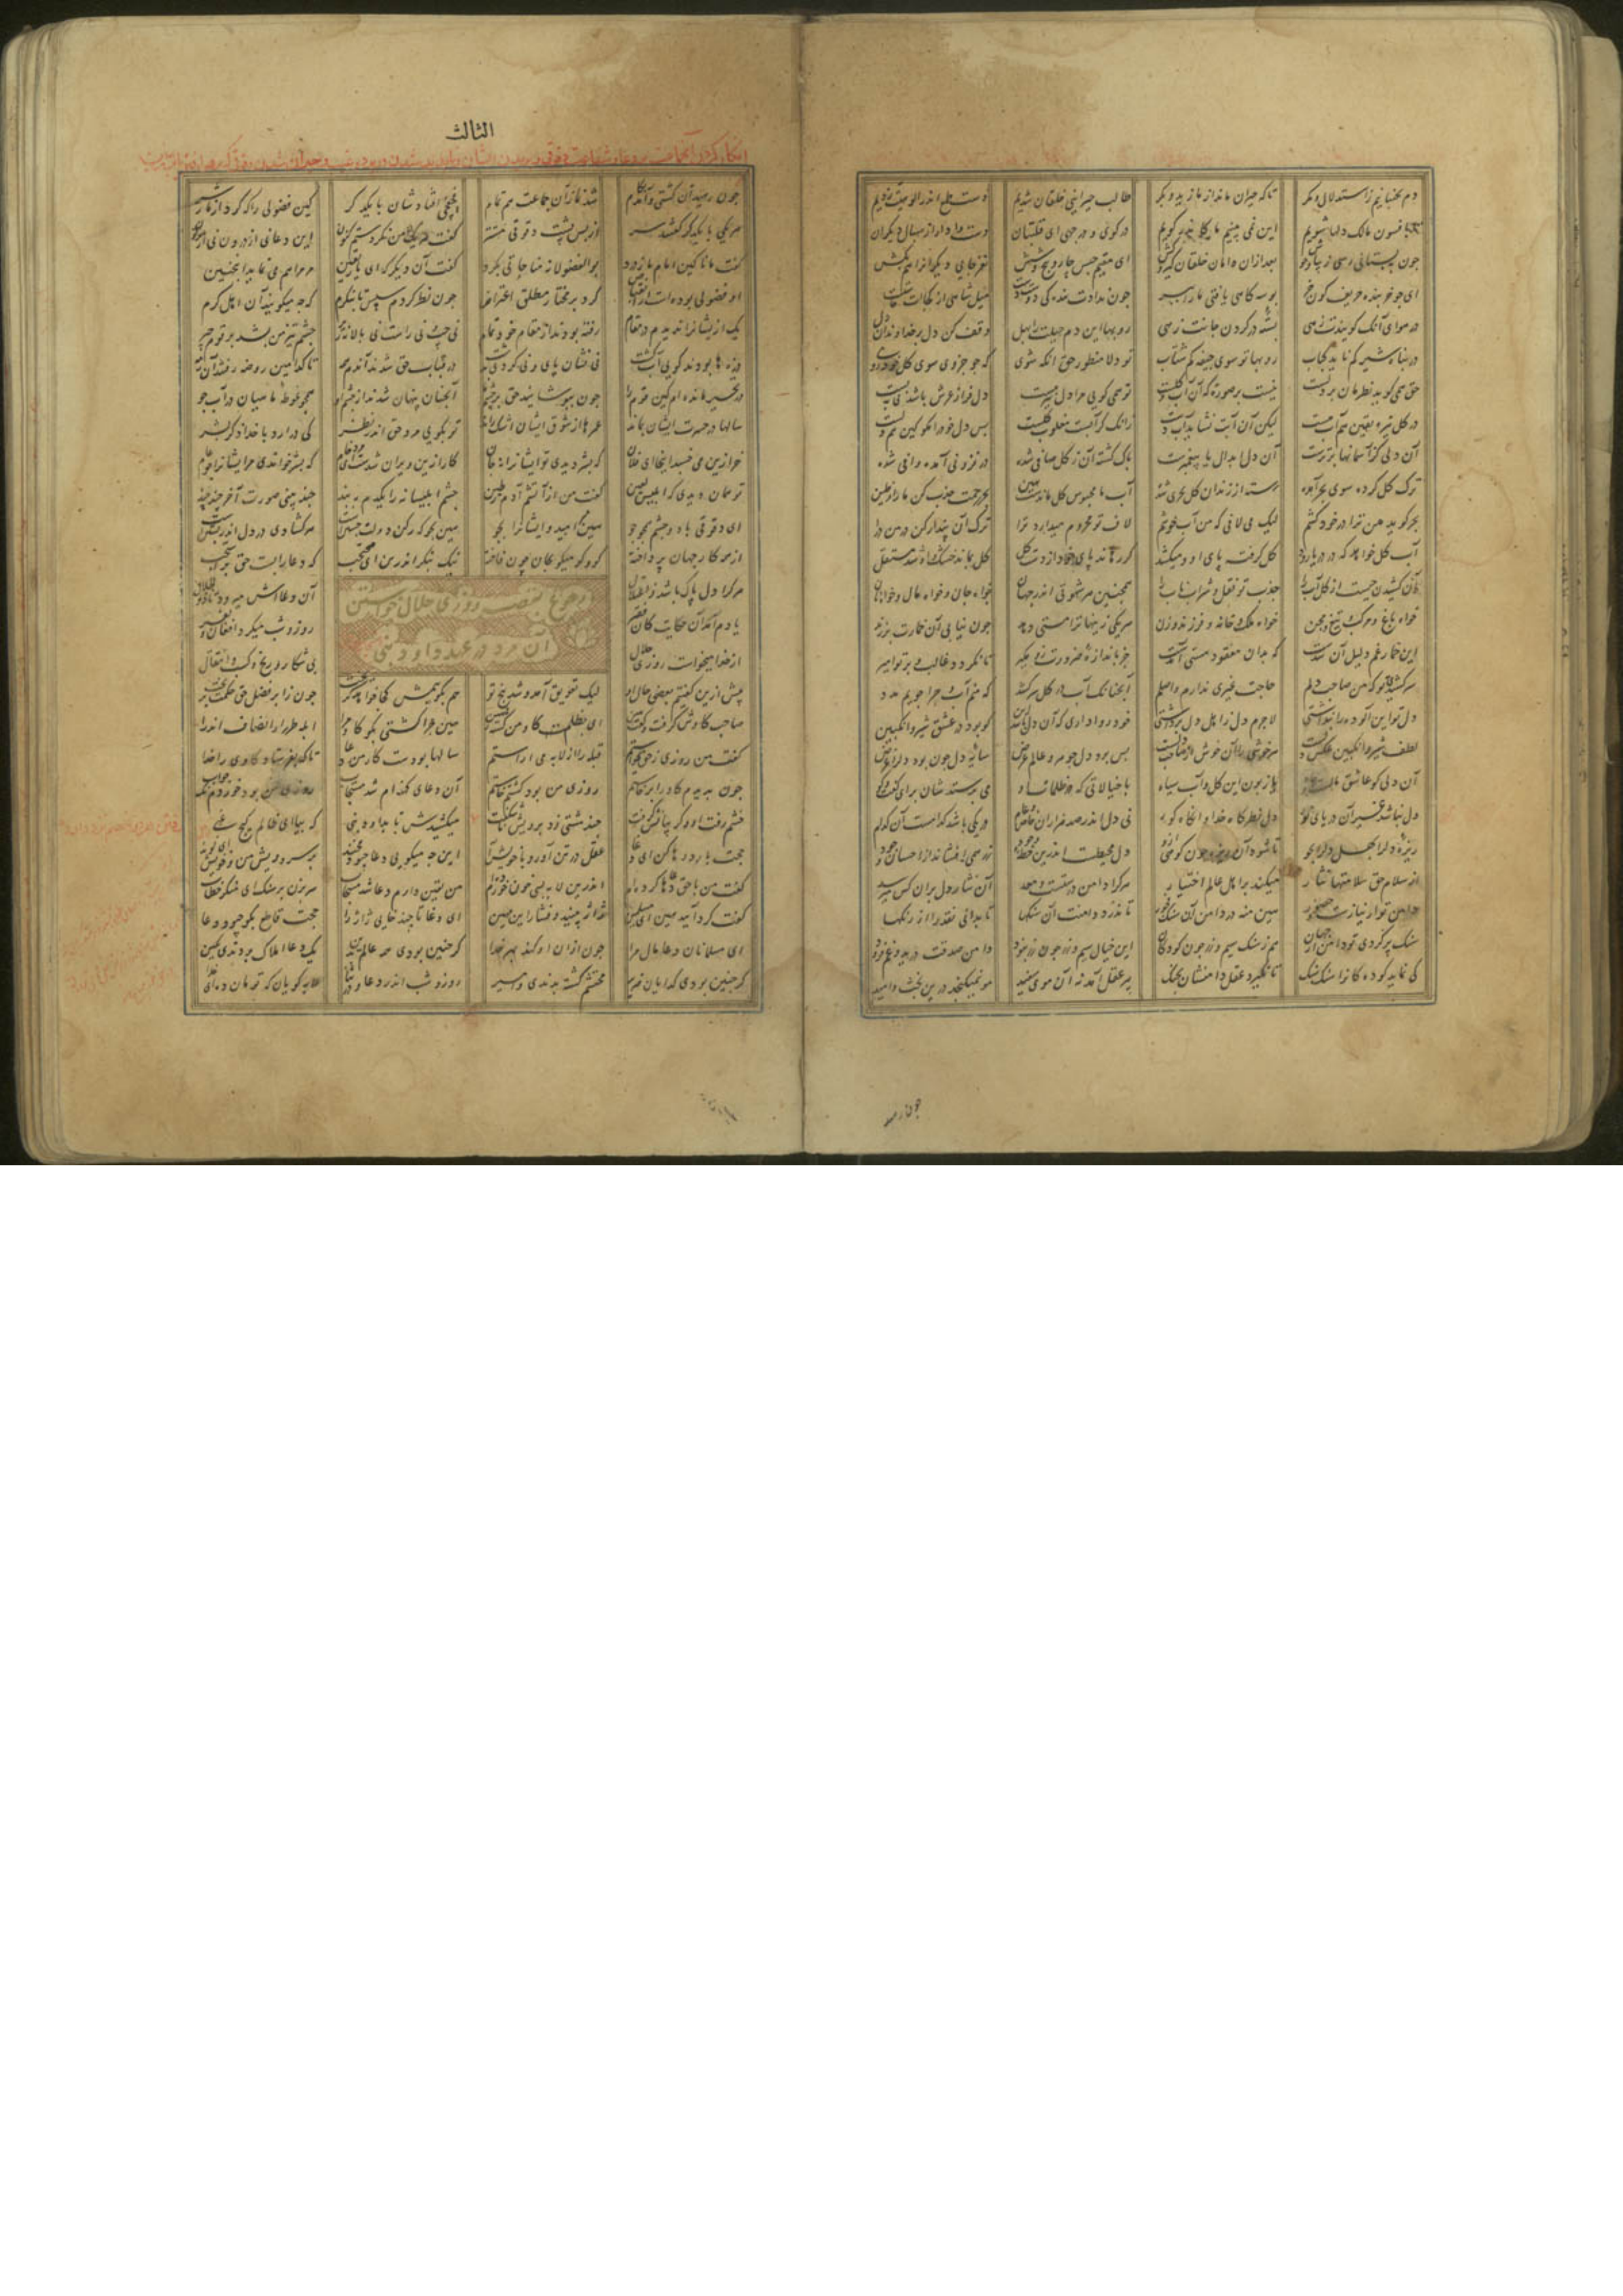 دم بجنبانیم ز استدلال و مکر تاکه حیران ماند از ما زید و بکر طالب حیرانی خلقان شدیم دست طمع اندر الوهیت زدیم
تا بافسون مالک دلها شویم این نمی بینیم ما کاندر کویم در کوی و در چهی ای قلتبان دست وا دار از سبال دیکران
چون ببستانی رسی زیبا و خوش بعد ازان دامان خلقان کیر و کش ای مقیم حبس چار و پنج و شش نغز جایی دیکرانرا هم بکش
ای چو خربنده حریف کون خر بوسه کاهی یافتی ما را ببر چون ندادت بندکی دوست دست میل شاهی از کجاات خاست
در هوای آنک کویندت زهی بسته در کردن جانت زهی روبها این دم حیلت را بهل وقف کن دل بر خداوندان دل
در پناه شیر کم ناید کباب روبها تو سوی جیفه کم شتاب تو دلا منظور حق انکه شوی که چو جزوی سوی کل خود روی
حق همی کوید نظرمان بر دلست نیست بر صورت که آن آب و کلست تو همی کویی مرا دل نیز هست دل فراز عرش باشد نی بپست
در کل تیره یقین هم آب هست لیک زان آبت نشاید آب دست زانک کر آبست مغلوب کلست پس دل خود را مکو کین هم دلست
آن دلی کز آسمانها برترست آن دل ابدال یا پیغمبرست پاک کشته آن ز کل صافی شده در فزونی آمده وافی شده
ترک کل کرده سوی بحر آمده رسته از زندان کل بحری شده آب ما محبوس کل ماندست هین بحر رحمت جذب کن ما را ز طین
بحر کوید من ترا در خود کشم لیک می لافی که من آب خوشم لاف تو محروم میدارد ترا ترک آن پندار کن در من درآ
آب کل خواهد که در دریا رود کل کرفته پای او و میکشد کر رهاند پای خود از دست کل کل بماند خشک و او شد مستقل
آن کشیدن چیست از کل آب را جذب تو نقل و شراب ناب را همچنین هر شهوتی اندر جهان خواه مال و خواه جاه و خواه نان
خواه باغ و مرکب و تیغ و مجن خواه ملک و خانه و فرزند و زن هر یکی زینها ترا مستی دهد چون نیابی آن خمارت میزند
این خمار غم دلیل آن شدست که بدان مفقود مستی آمدست جز باندازه ضرورت زو مکیر تا نکردد غالب و بر تو امیر
سر کشیدی تو که من صاحب دلم حاجت غیری ندارم واصلم آنچنانک آب در کل سر کشد که منم آب و چرا جویم مدد
دل تو این آلوده را پنداشتی لاجرم دل ز اهل دل برداشتی خود روا داری که آن دل باشد این کو بود در عشق شیر و انکبین
لطف شیر و انکبین عکس دلست هر خوشی را آن خوش از دل حاصلست پس بود دل جوهر و عالم عرض سایه دل چون بود دل را غرض
آن دلی کو عاشق مالست و جاه یا زبون این کل و آب سیاه یا خیالاتی که در ظلمات او می پرستدشان برای کفت و کو
دل نباشد غیر آن دریای نور دل نظرکاه خدا و آنکاه کور نی دل اندر صد هزاران خاص و عام در یکی باشد کدامست آن کدام
ریزه دل را بهل دل را بجو تا شود آن ریزه چون کوهی ازو دل محیطست اندرین خطه وجود زر همی افشاند از احسان و جود
از سلام حق سلامتها نثار میکند بر اهل عالم اختیار هر کرا دامن درستست و معد آن نثار دل بران کس می رسد
دامن تو آن نیازست و حضور هین منه در دامن آن سنک فجور تا ندرد دامنت آن سنکها تا بدانی نقد را از رنکها
سنک پر کردی تو دامن از جهان هم ز سنک سیم و زر چون کودکان این خیال سیم و زر چون زر نبود دامن صدقت درید و غم فزود
کی نماید کودکانرا سنک سنک تا نکیرد عقل دامنشان بچنک پیر عقل آمد نه آن موی سپید مو نمیکنجد درین بخت و امید
چون رسید
الثالث
انکار کردن آنجماعت بر دعا و شفاعت دقوقی و پریدن ایشان و ناپدید شدن در پرده غیب و حیران شدن دقوقی که بر هوا رفتند یا بر زمین
چون رهید آن کشتی و آمد بکام شد نماز آن جماعت هم تمام فجفجی افتادشان با یکدکر کین فضولی را که کرد از ما ز سر
هر یکی با یکدکر کفتند سر از پس پشت دقوقی مستتر کفت هر یک من نکردستم کنون این دعا نی از درون نی از برون
کفت مانا کین امام ما ز درد بو الفضولانه مناجاتی بکرد کفت آن دیکر که ای یار یقین مر مرا هم می نماید اینچنین
او فضولی بوده است از انقباض کرد بر مختار مطلق اعتراض چون نظر کردم سپس تا بنکرم که چه میکویند آن اهل کرم
یک ازیشانرا ندیدم در مقام رفته بودند از مقام خود تمام نی چپ نی راست نی بالا نه زیر چشم تیز من نشد بر قوم چیر
درها بودند کویی آب کشت نی نشان پای و نی کردی بدشت در قباب حق شدند آن دم همه تا کدامین روضه رفتند آن رمه
در تحیر مانده ام کین قوم را چون بپوشانید حق بر چشم ما آنچنان پنهان شدند از چشم او همچو غوطه ماهیان در آب جو
سالها در حسرت ایشان بماند عمرها از شوق ایشان اشک راند تو بکویی مرد حق اندر نظر کی در آرد با خدا ذکر بشر
خر ازین می خسبد اینجا ای فلان که بشر دیدی تو ایشانرا نه جان کار ازین ویران شدست ای مرد خام که بشر خواندی مر ایشانرا چو عام
تو همان دیدی که ابلیس لعین کفت من از آتشم آدم ز طین چشم ابلیسانه را یکدم ببند چند بینی صورت آخر چند چند
ای دقوقی با دو چشم همچو جو هین مبر امید و ایشانرا بجو هین بجو که رکن دولت جستنست هر کشادی در دل اندر بستنست
از همه کار جهان پرداخته کو و کو میکو بجان چون فاخته نیک بنکر اندرین ای محتجب که دعا را بست حق در استجب
هر کرا دل پاک باشد ز اعتلال آن دعااش میرود تا ذوالجلال
رجوع بقصه روزی حلال خواستن
آن مرد در عهد داود نبی
یادم آمد آن حکایت کان فقیر روز و شب میکرد افغان و نفیر
از خدا میخواست روزی حلال بی شکار و رنج و کسب و انتقال
پیش ازین کفتیم بعضی حال او لیک تعویق آمد و شد پنج تو هم بکوییمش کجا خواهد کریخت چون ز ابر فضل حق حکمت بریخت
صاحب کاوش کرفت و کفت هین ای بظلمت کاو من کشته رهین هین چرا کشتی بکو کاو مرا ابله طرار انصاف اندرآ
کفت من روزی ز حق میخواستم قبله را از لابه می آراستم سالها بودست کار من دعا تا که بفرستاد کاوی را خدا
چون بدیدم کاو را برخاستم روزی من بود کشتم خواستم آن دعای کهنه ام شد مستجاب روزی من بود خوردم نک جواب
خشم رفت او و کریبانش کرفت چند مشتی زد برویش ناشکفت میکشیدش تا بداود نبی که بیا ای ظالم کیج غبی
حجت بارد رها کن ای دغا عقل در تن آور و با خویش آ این چه میکویی دعا چبود مخند بر سر و ریش من و خویش ای لوند
کفت من با حق دعاها کرده ام اندرین لابه بسی خون خورده ام من یقین دارم دعا شد مستجاب سر بزن بر سنک ای منکر خطاب
کفت کرد آیید هین ای مسلمین ژاژ بینید و فشار این مهین ای دغا تا چند خایی ژاژ را حجت قاطع بکو چبود دعا
ای مسلمانان دعا مال مرا چون ازان او کند بهر خدا کر چنین بودی همه عالم بدین یک دعا املاک بردندی بکین
کر چنین بودی کدایان ضریر محتشم کشته بدندی و امیر روز و شب اندر دعا و در ثنا لابه کویان که تو مان ده ای خدا